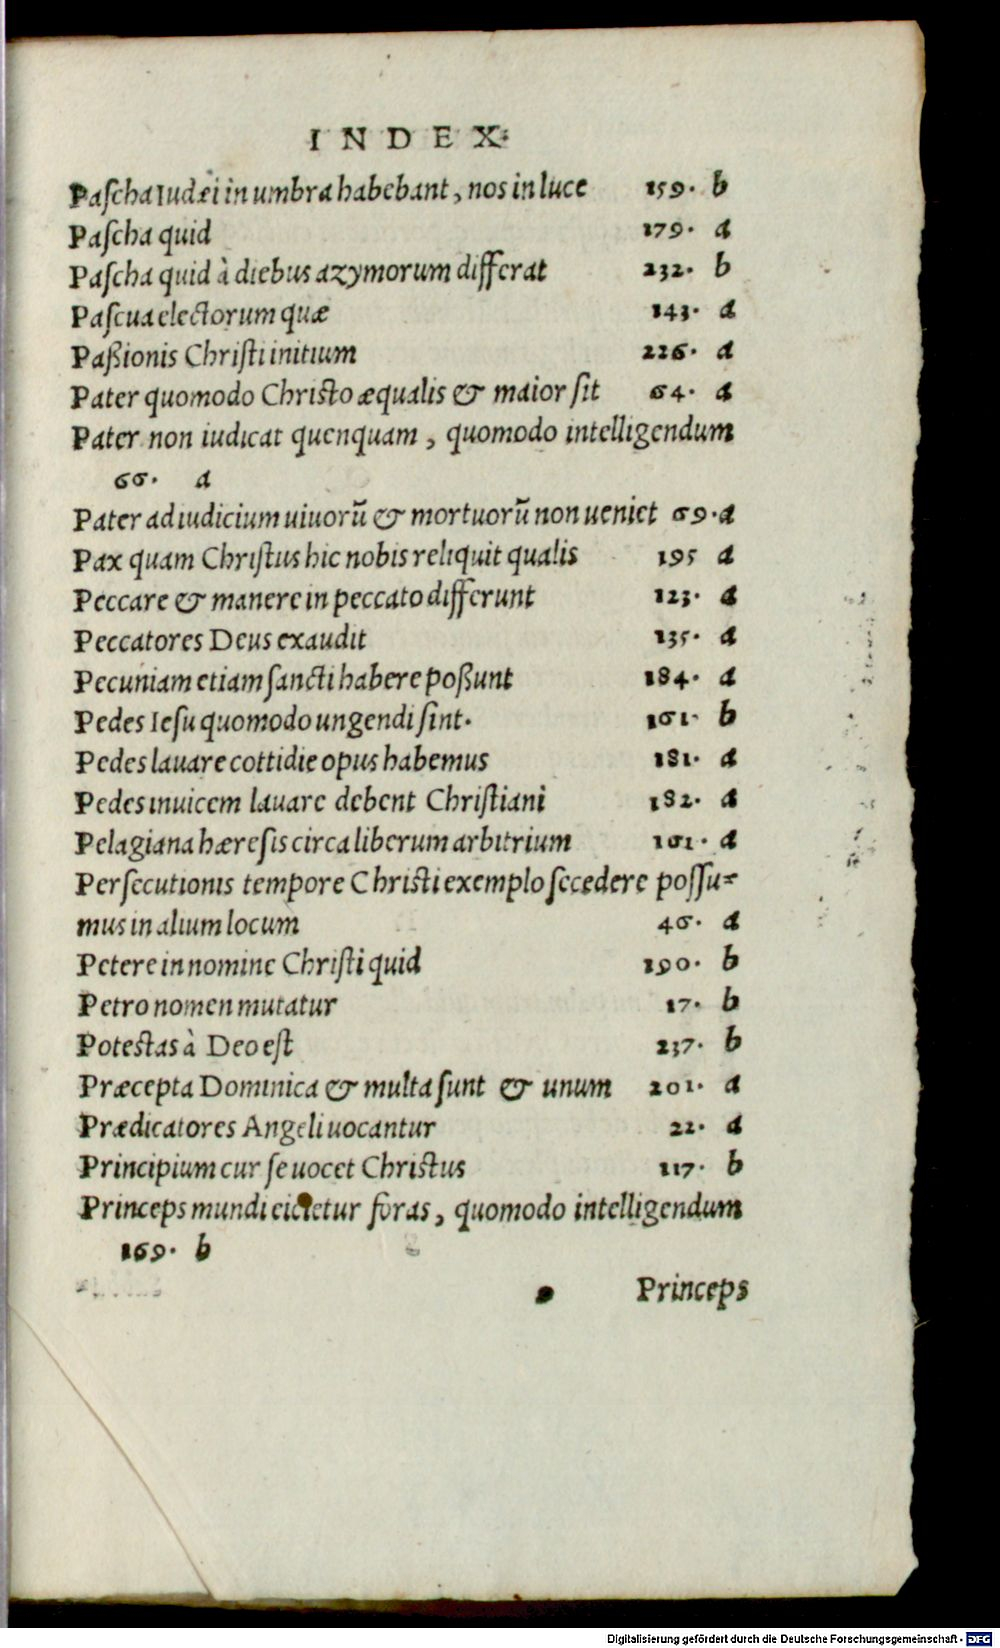 INDEX.
Paſcha Iudæi in umbra habebant, nos in luce 159. b
Paſcha quid 179. a
Paſcha quid à diebus azymorum differat 232. b
Paſcua electorum quæ 143. a
Paßionis Chriſti initium 226. a
Pater quomodo Chriſto æqualis & maior ſit 64. a
Pater non iudicat quenquam, quomodo intelligendum
66. a
Pater ad iudicium uiuorũ & mortuorũ non ueniet 69. a
Pax quam Chriſtus hic nobis reliquit qualis 195 a
Peccare & manere in peccato differunt 123. a
Peccatores Deus exaudit 135. a
Pecuniam etiam ſancti habere poßunt 184. a
Pedes Ieſu quomodo ungendi ſint. 161. b
Pedes lauare cottidie opus habemus 181. a
Pedes inuicem lauare debent Chriſtiani 182. a
Pelagiana hæreſis circa liberum arbitrium 161. a
Perſecutionis tempore Chriſti exemplo ſecedere poſſu-
mus in alium locum 46. a
Petere in nomine Chriſti quid 190. b
Petro nomen mutatur 17. b
Poteſtas à Deo eſt 237. b
Præcepta Dominica & multa ſunt & unum 201. a
Prædicatores Angeli uocantur 22. a
Principium cur ſe uocet Chriſtus 117. b
Princeps mundi eicietur foras, quomodo intelligendum
169. b
Princeps
Digitalisierung gefördert durch die Deutsche Forschungsgemeinschaft - DFG